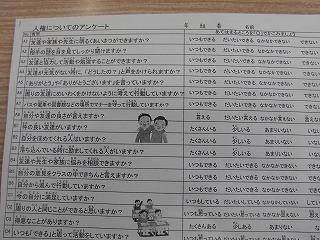 人権についてのアンケート 年 組 番 名前
No 質問 あてはまるところに○をつけてみましょう
友達や家族や先生に明るくあいさつができますか? いつもできる だいたいできる なかなかできない できない
相手の話を目を見てしっかり聞けますか? いつもできる だいたいできる なかなかできない できない
友達と協力して活動や相談することができますか? いつもできる だいたいできる なかなかできない できない
友達が元気がない時に「どうしたの?」と声をかけられますか? いつもできる だいたいできる なかなかできない
「ありがとう」や「ありがとうございます」を言っていますか? いつもできる だいたいできる なかなかできない
周りの友達にめいわくをかけないように考えて行動していますか? いつもできる だいたいできる なかなかできない
バスや電車や図書館などの場所でマナーを守って行動していますか? いつもできる だいたいできる なかなかできない
自分や友達の良さが言えますか? 言える だいたい言える なかなか言えない 言えない
仲の良い友達がいますか? たくさんいる 少しいる あまりいない
自分をほめてくれる人はいますか? たくさんいる 少しいる あまりいない
落ち込んでいる時に励ましてくれる人はいますか? たくさんいる 少しいる あまりいない
友達や先生や家族に悩みを相談できますか? いつもできる だいたいできる なかなかできない
自分の意見をクラスの中できちんと言えますか? いつもできる だいたいできる なかなかできない
自分から進んで行動していますか? いつもできる だいたいできる なかなかできない
今の自分に満足していますか?
周りの人と同じことができると思いますか?
得意なことがありますか? たくさんある 少しある あまりない
いつも「できる」と思って活動をしていますか?